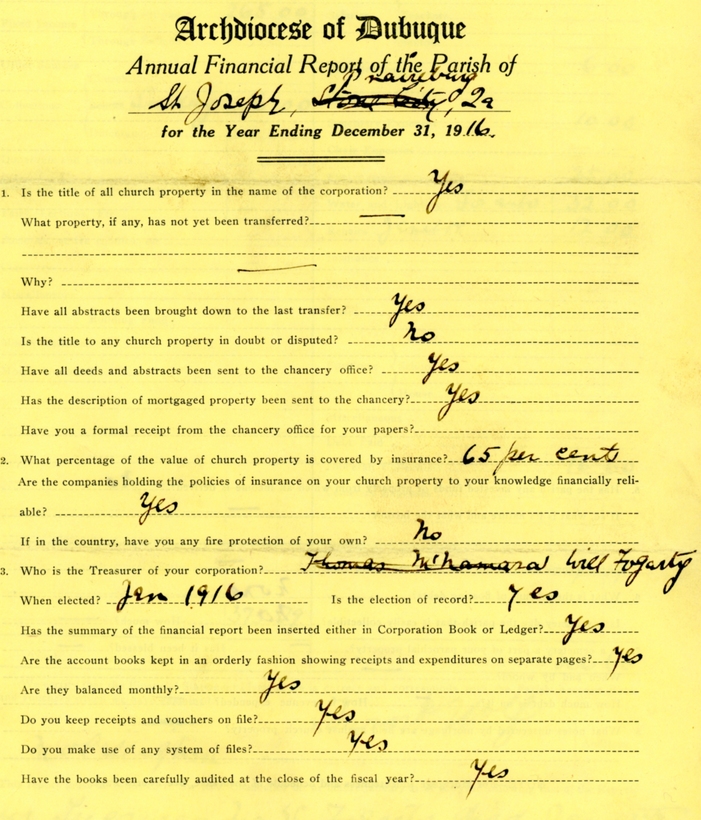 Archdiocese of Dubuque
Annual Financial Report of the Parish of
Prairieburg
St Joseph, Stone City, Ia
for the Year Ending December 31, 1916.
1. Is the title of all church property in the name of the corporation? Yes
What property, if any, has not yet been transferred? —
Why? —
Have all abstracts been brought down to the last transfer? Yes
Is the title to any church property in doubt or disputed? No
Have all deeds and abstracts been sent to the chancery office? Yes
Has the description of mortgaged property been sent to the chancery? Yes
Have you a formal receipt from the chancery office for your papers?
2. What percentage of the value of church property is covered by insurance? 65 per cent
Are the companies holding the policies of insurance on your church property to your knowledge financially reli-
able? Yes
If in the country, have you any fire protection of your own? No
3. Who is the Treasurer of your corporation? Thomas McNamara Will Fogarty
When elected? Jan 1916 Is the election of record? Yes
Has the summary of the financial report been inserted either in Corporation Book or Ledger? Yes
Are the account books kept in an orderly fashion showing receipts and expenditures on separate pages? Yes
Are they balanced monthly? Yes
Do you keep receipts and vouchers on file? Yes
Do you make use of any system of files? Yes
Have the books been carefully audited at the close of the fiscal year? Yes